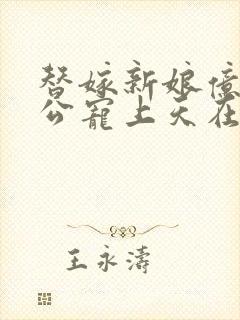 替嫁新娘亿
公宠上天在
王永涛